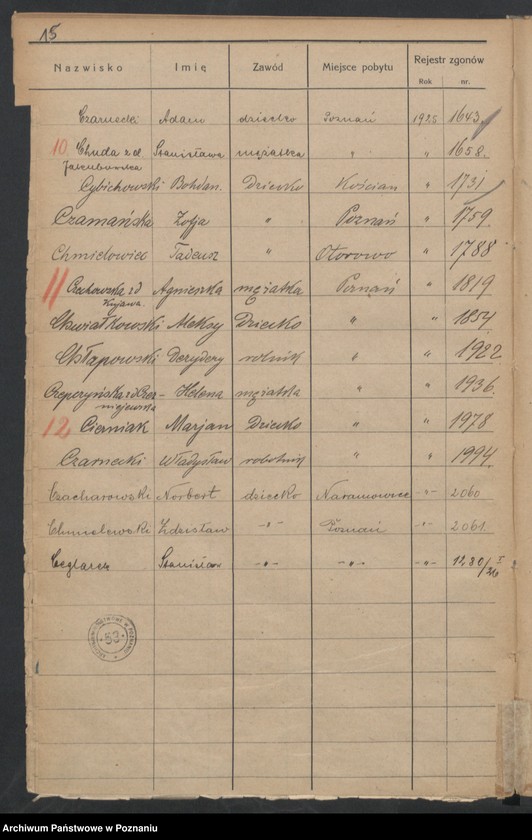 15
Nazwisko Imię Zawód Miejsce pobytu Rejestr zgonów
Rok nr.
Czarnecki Adam dziecko Poznań 1925 1643.
10. Chuda z d. Stanisława mężatka " " 1658.
Jakubowska
Cybichowski Bohdan. Dziecko Kościan " 1731
Czamańska Zofja " Poznań " 1759.
Chmielowiec Tadeusz " Otorowo " 1788
11 Czechowska z d. Agnieszka mężatka Poznań " 1819
Kujawa.
Chwiałkowski Aleksy Dziecko " " 1854.
Chłapowski Dezydery rolnik " " 1922
Czepczyńska z d. Czer- Helena mężatka " " 1936.
niejewska
12 Cierniak Marjan Dziecko " " 1978
Czarnecki Władysław robotnik " " 1994.
Czacharowski Norbert dziecko Naramowice -"- 2060
Chmielewski Zdzisław -"- Poznań -"- 2061.
Ceglarek Stanisław -"- -"- -"- 1230/26 I
53
Archiwum Państwowe w Poznaniu